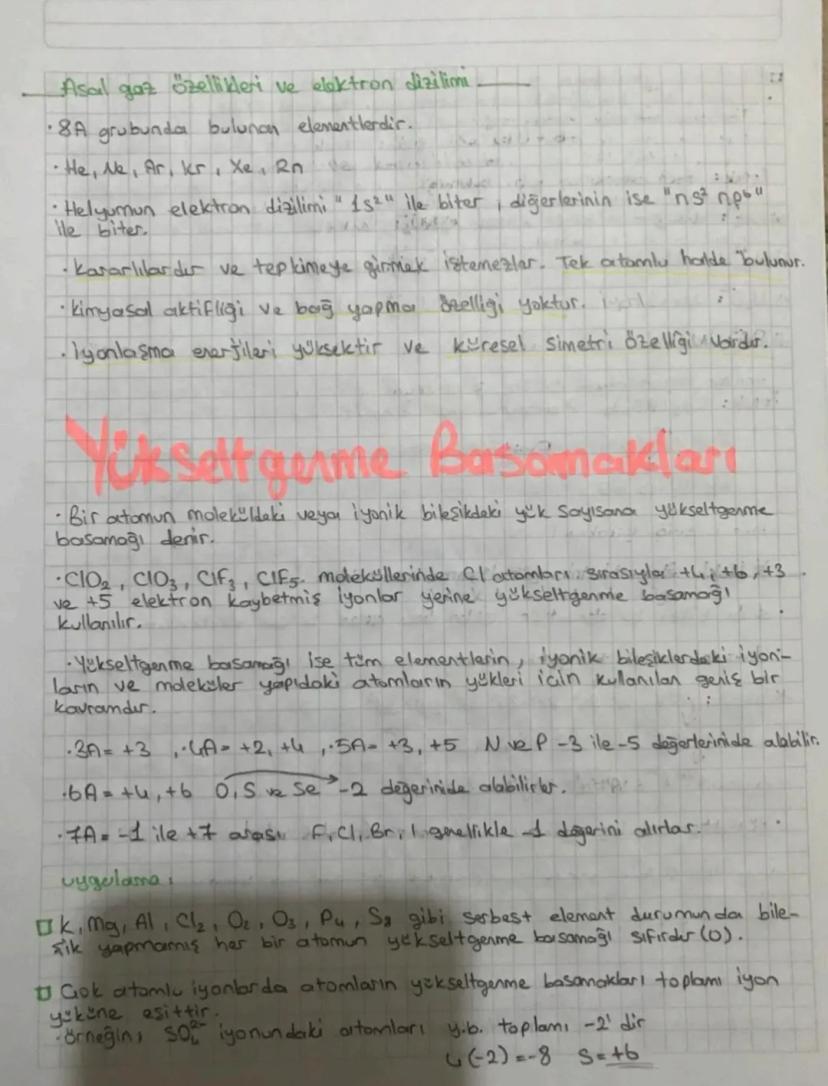 Asal gaz özellikleri ve elektron dizilimi
· 8A grubunda bulunan elementlerdir.
· He, Ne, Ar, Kr, Xe, Rn
· Helyumun elektron dizilimi "1s²" ile biter, diğerlerinin ise "ns² np⁶"
ile biter.
· Kararlılardır ve tepkimeye girmek istemezler. Tek atomlu halde bulunur.
· Kimyasal aktifliği ve bağ yapma özelliği yoktur.
· İyonlaşma enerjileri yüksektir ve küresel simetri özelliği vardır.
Yükseltgenme Basamakları
· Bir atomun moleküldeki veya iyonik bileşikdeki yük sayısına yükseltgenme
basamağı denir.
· ClO₂, ClO₃, ClF₃, ClF₅ moleküllerinde Cl atomları sırasıyla +4, +6, +3
ve +5 elektron kaybetmiş iyonlar yerine yükseltgenme basamağı
kullanılır.
· Yükseltgenme basamağı ise tüm elementlerin, iyonik bileşiklerdeki iyon-
ların ve moleküler yapıdaki atomların yükleri için kullanılan geniş bir
kavramdır.
· 3A= +3, · 4A= +2, +4, · 5A= +3, +5 N ve P -3 ile -5 değerlerinide alabilir.
· 6A= +4, +6 O, S ve Se -2 değerinide alabilirler.
· 7A= -1 ile +7 arası F, Cl, Br, I genellikle -1 değerini alırlar.
uygulama:
K, Mg, Al, Cl₂, O₂, O₃, P₄, S₈ gibi serbest element durumunda bile-
şik yapmamış her bir atomun yükseltgenme basamağı sıfırdır (0).
Çok atomlu iyonlarda atomların yükseltgenme basamakları toplamı iyon
yüküne eşittir.
· Örneğin, SO₄²⁻ iyonundaki atomları y.b. toplamı -2' dir
4(-2) = -8 S = +6